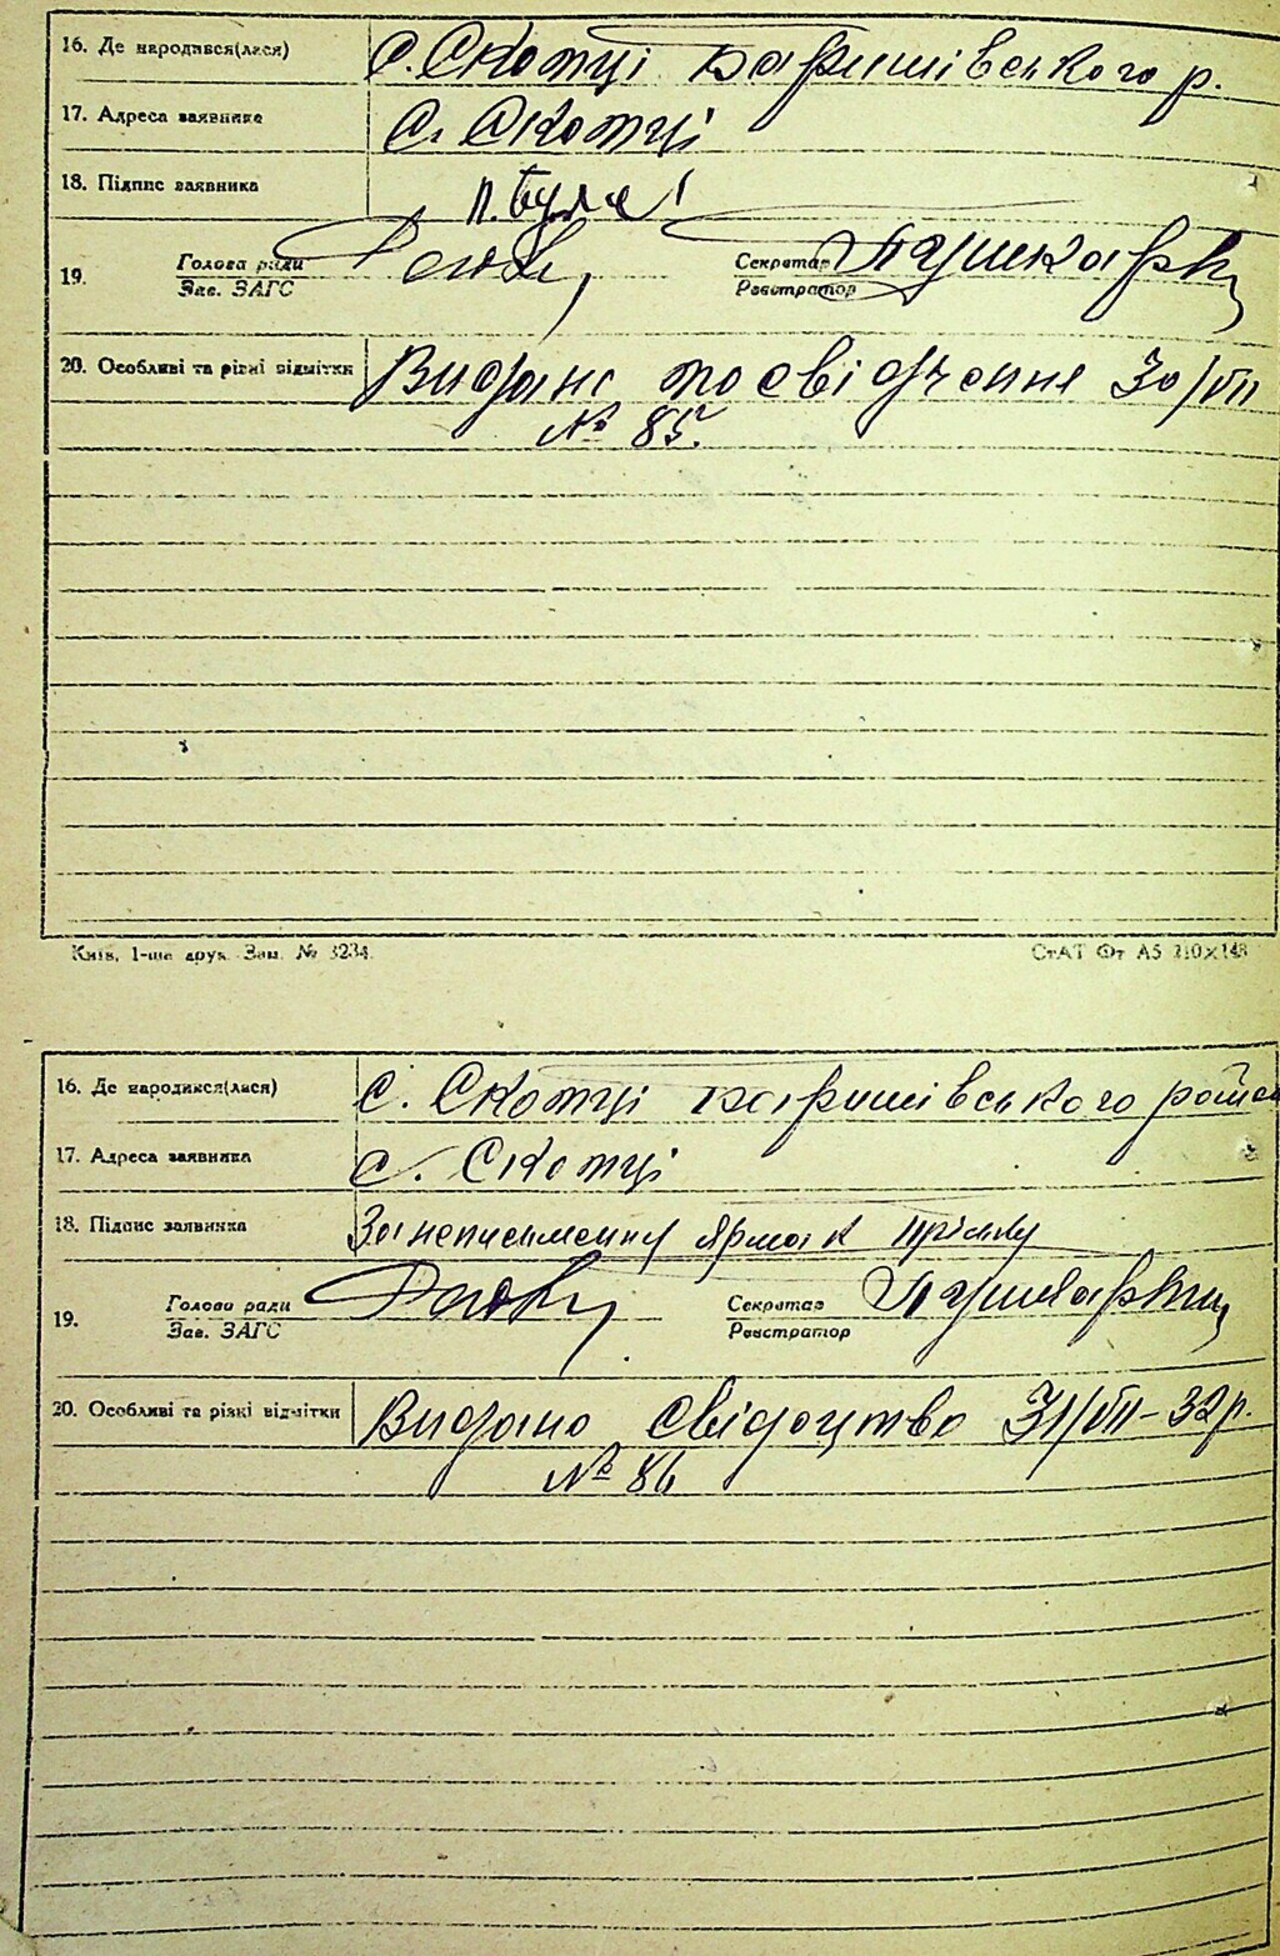 16. Де народився(лася) с. Скопці Баришівського р.
17. Адреса заявника с. Скопці
18. Підпис заявника
19. Голова ради Секретар Пушкарь
Зав. ЗАГС Реєстратор
20. Особливі та різні відмітки Видано посвідчення 30/VII
№ 85.
Київ, 1-ша друк. Зам. № 3234. СтАТ Фт А5 210×148
16. Де народився(лася) с. Скопці Баришівського район
17. Адреса заявника с. Скопці
18. Підпис заявника За неписьменну Ярмак
19. Голова ради Секретар
Зав. ЗАГС Реєстратор
20. Особливі та різні відмітки Видано свідоцтво 31/VII-32 р.
№ 86